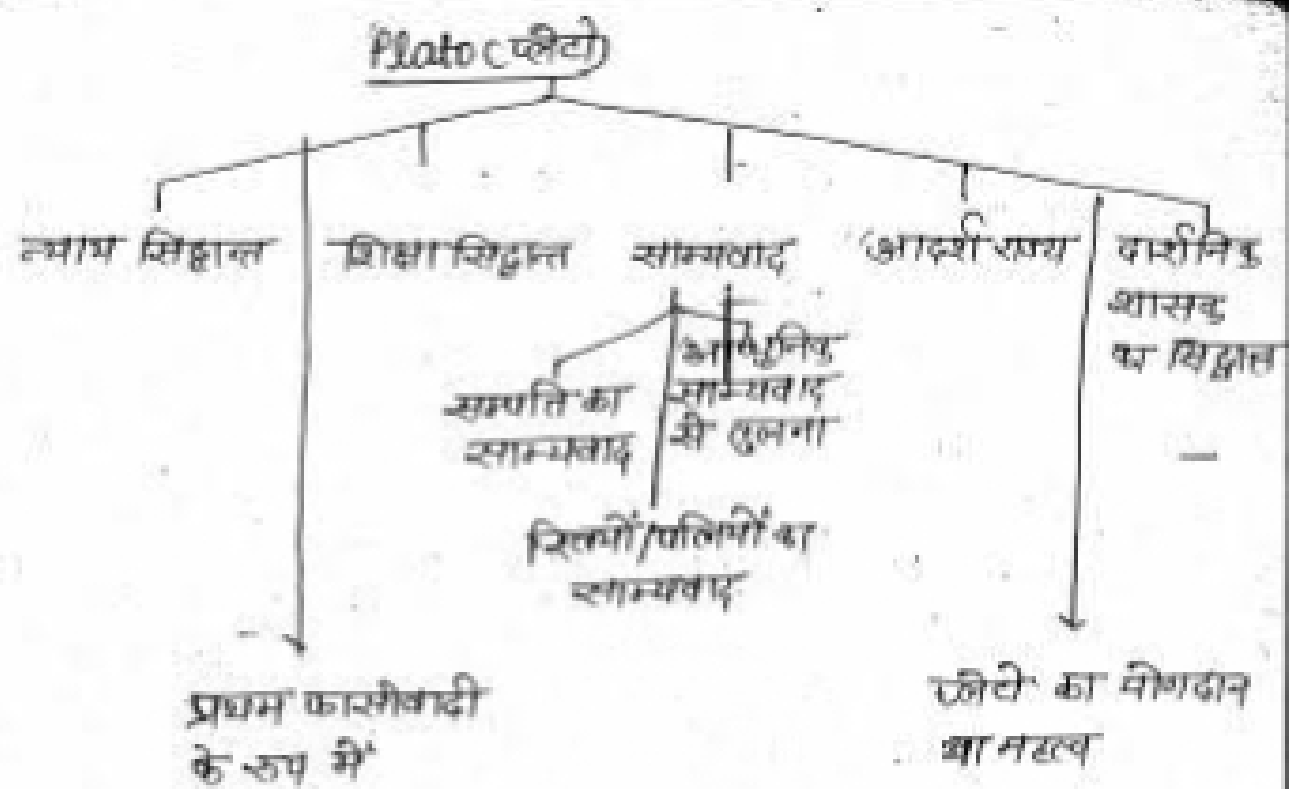 Plato (प्लेटो)
न्याय सिद्धान्त
शिक्षा सिद्धान्त
साम्यवाद
आदर्श राज्य
दार्शनिक
शासक
का सिद्धान्त
सम्पत्ति का
साम्यवाद
आधुनिक
साम्यवाद
से तुलना
स्त्रियों/पत्नियों का
साम्यवाद
प्रथम फासीवादी
के रूप में
प्लेटो का योगदान
या महत्व